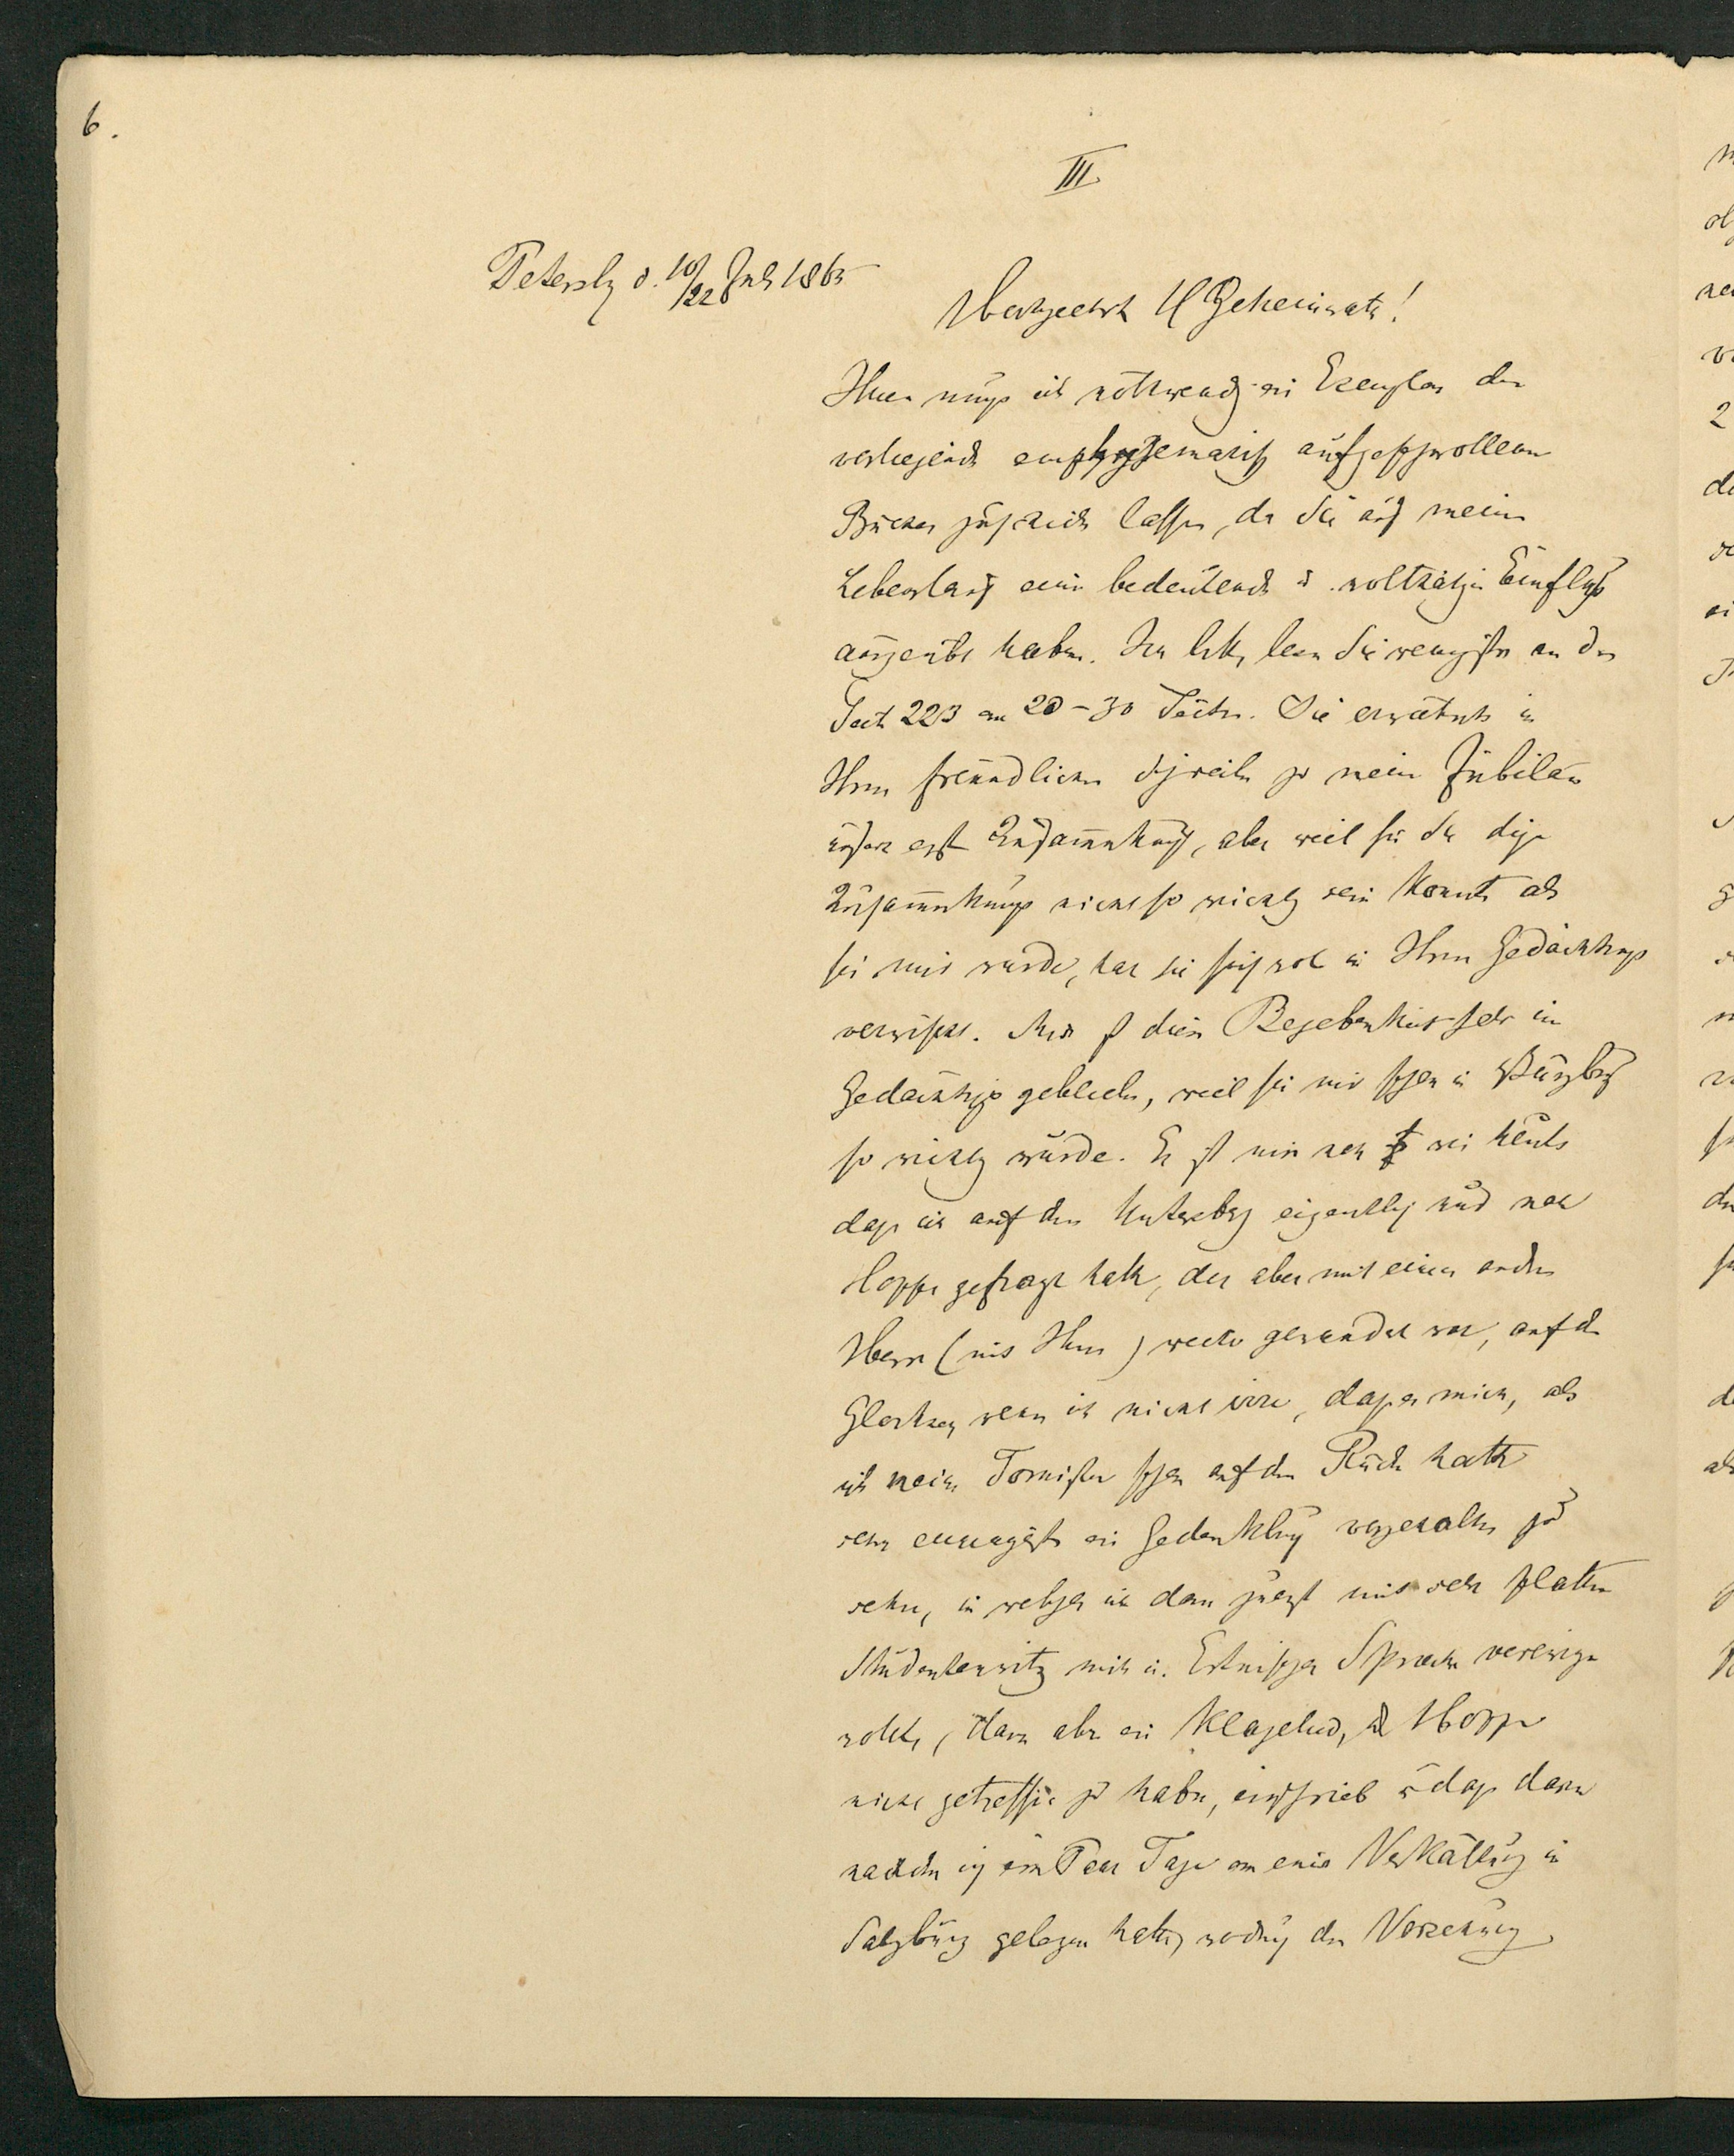 6.
III.
Petersbg d. 10/22 Juli 1865
Hochgeehrt H Geheimrath!
Ihnen muss ich nothwendig ein Exemplar des
vorliegende emphysematisch aufgeschwollenen
Buches zuschicken lassen, da Sie auf meinen
Lebenslauf einen bedeutend u. wolthätigen Einfluss
ausgeübt haben. Ich bitte, lesen Sie wenigstens an der
Seite 223 an 20–30 Seiten. Sie erwähnte in
Ihrem freundlichen Schreiben zu mein Jubiläum
unsere erste Zusammenkunft, aber weil für Sie diese
Zusammenkunft nicht so wichtig sein konnte als
sie mir wurde, hat sie sich wol in Ihrem Gedächtniss
verwischt. Mir ist diese Begebenheit sehr im
Gedächtniss geblieben, weil sie mir schon in Würzburg
so wichtig wurde. Es ist mir noch wie heute
dass ich auf den Untersberg eigentlich nur nach
Hoppe gefragt hatte, der aber mit einem andern
Herrn (mit Ihnen) weiter gewandert war, auf den
Glockner, wenn ich nicht irre, dass er mich, als
ich meinen Tornister schon auf dem Rücken hatte
ein Gedenkbuch vorgehalten zu
sehen, in welches ich dann zuerst mit sehr platten
Studentenwitz mich in Estnischer Sprache verewigen
wollte, dann aber ein Klagelied, Hoppe
nicht getroffen zu haben, einschrieb u dass dann
nachdem ich ein Paar Tage an einer Verkältung in
Salzburg gelegen hatte, wodurch die Vorsehung